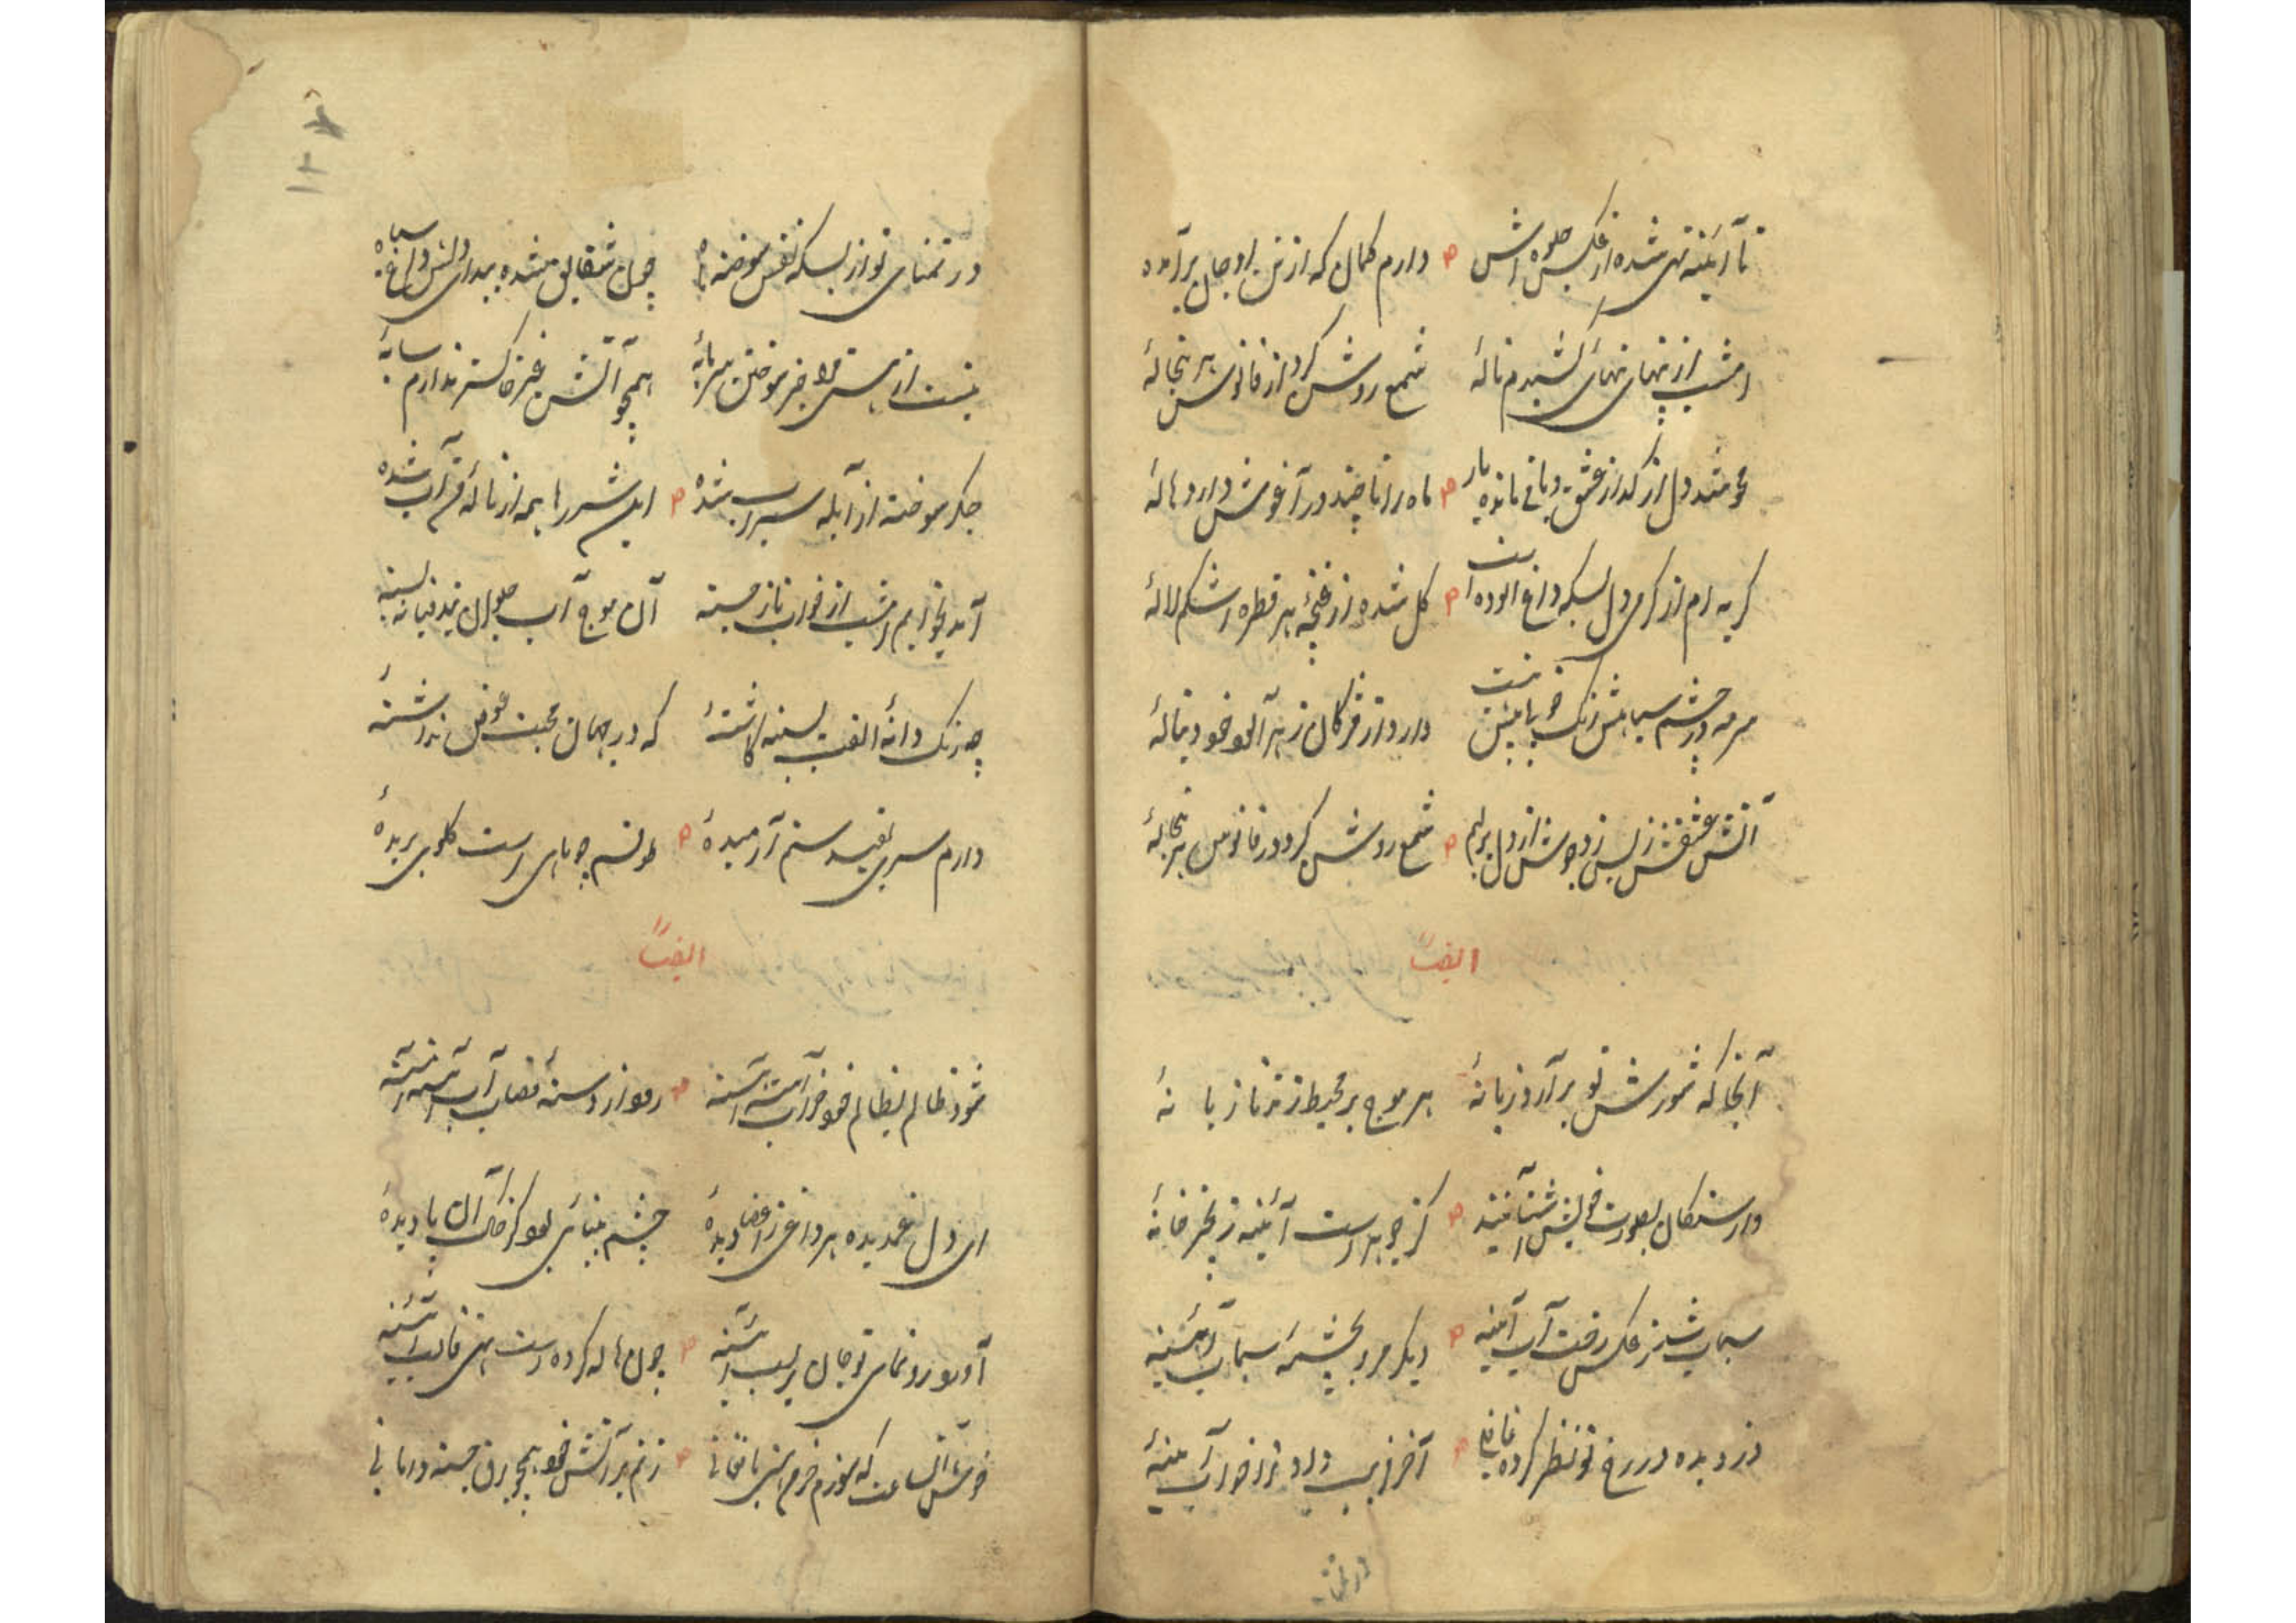 تا آئینه تهی شده از عکس جلوه اش دارم کمان که از تن او جان برآمده
امشب از تنهای تنهای کشیدم نالهٔ شمع روشن کرد از فانوس هر تبخالهٔ
محو شد دل از گداز عشق و باقی مانده یار ماه را تا چند در آغوش دارد هالهٔ
گریه ام از گرمی دل بسکه داغ آلوده است گل شده از غنچهٔ هر قطره اشکم لالهٔ
سرمه در چشم سیاهش زنگ خوبان نیست دارد از مژگان ز هر آهو خود دنبالهٔ
آتش عشقش ز بس زد جوش از دل بر لبم شمع روشن کرد در فانوس هر تبخالهٔ
ایضاً
آنجا که شورش تو برآرد زبانهٔ هر موج بر محیط زند تازیانهٔ
وارستگان بصورت خویش آشنا نیند کز جوهر است آئینه زنجیر خانهٔ
سیماب شد ز عکس رخت آب آئینه دیگر مرو بچشمهٔ سیماب آئینه
دزدیده در رخ تو نظر کرده غافلی آخر فریب داد ترا خواب آئینه
در تمنای
در تمنای تو از بسکه نفس سوخته ماه چون شقایق شده پیدا دلش و داغ سیاه
نیست از هستی مرا جز سوختن سرمایهٔ همچو آتش غیر خاکستر ندارم سایهٔ
جگر سوخته از آبله سیراب شده این شرر ها همه از نالهٔ من آب شده
آمد بخوابم امشب از خواب ناز جسته آن موج آب حیوان بند قبا نه بسته
چه رنگ دانهٔ الفت بسینه کاشتهٔ که در جهان محبت عوض نداشتهٔ
دارم سری بقید ستم آرمیدهٔ طوقم چو ماهی است گلوی بریدهٔ
ایضاً
شود ظالم بظالم خو خراب آهسته آهسته رود از دستهٔ قصاب آب آهسته آهسته
ای دل غمدیده هر داغی ز اعضا دیدهٔ چشم بینائی بود کز خاک آن پا دیدهٔ
آمد برونمای تو جان بر لب آئینه چون هاله کرده است تهی قالب آئینه
خوش آن ساعت که سوزم خرمن هستی بافغانی زنم بر آتش خود همچو برق جسته دامانی